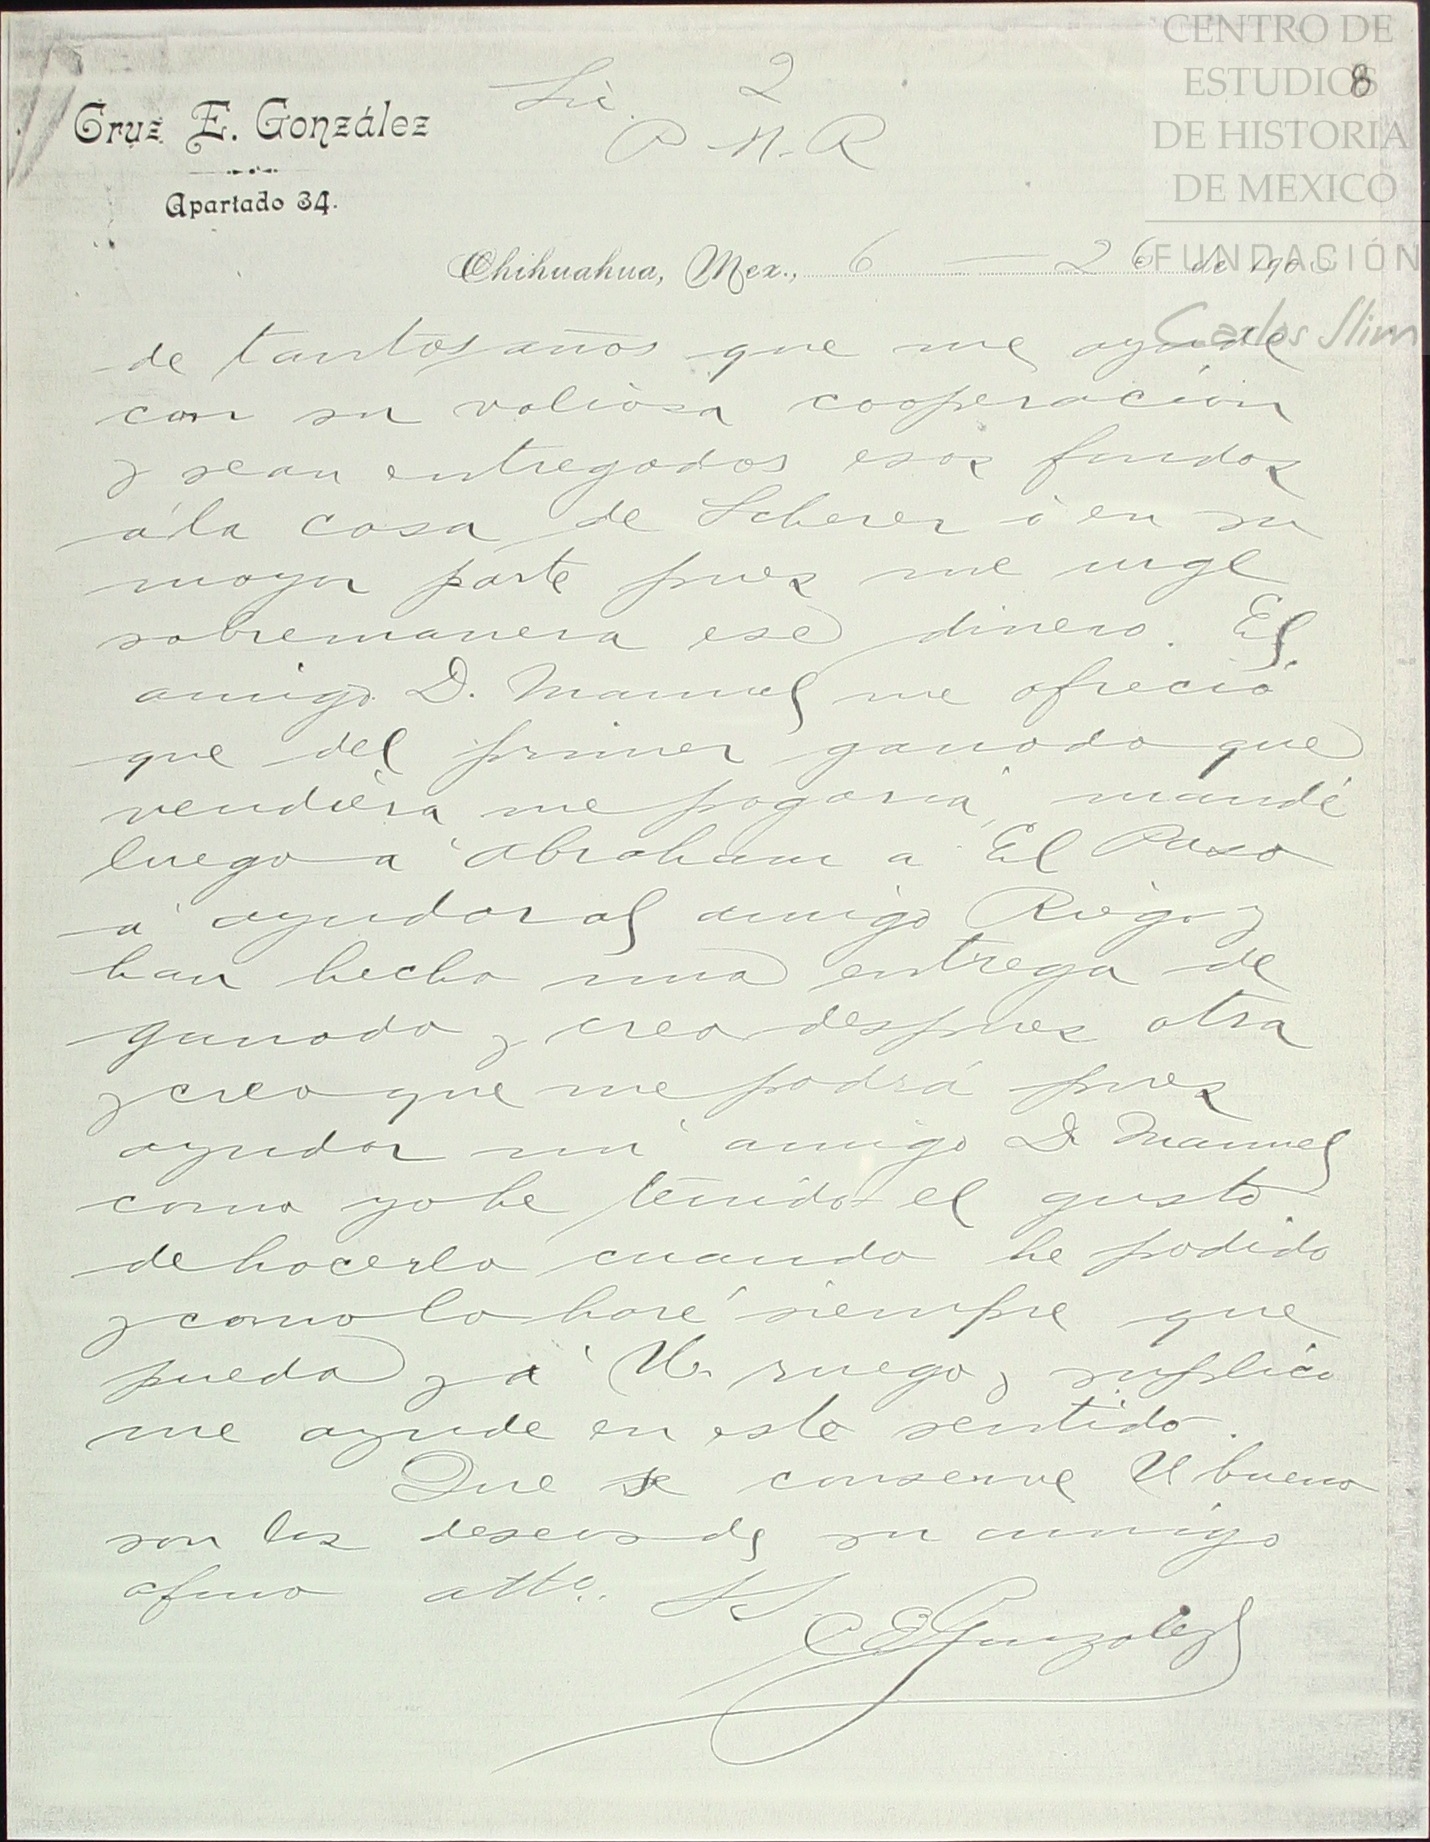 CENTRO DE
ESTUDIOS
DE HISTORIA
DE MEXICO
FUNDACIÓN
Carlos Slim
8
Cruz E. González
Apartado 34.
Lic. 2
P. N. R
Chihuahua, Mex., 6 — 26 de 190
de tantos años que me ayude
con su valiosa cooperación
y sean entregados esos fondos
á la casa de Scherer ó en su
mayor parte pues me urge
sobremanera ese dinero. El
amigo D. Manuel me ofreció
que del primer ganado que
vendiera me pagaria, mandé
luego a Abraham a El Paso
á ayudar al amigo Riego y
han hecho una entrega de
ganado y creo despues otra
y creo que me podrá pues
ayudar mi amigo D Manuel
como yo he tenido el gusto
de hacerlo cuando he podido
y como lo haré siempre que
pueda y á U. ruego y suplico
me ayude en este sentido.
Que se conserve U bueno
son los deseos de su amigo
afmo atto. SS
C E Gonzalez